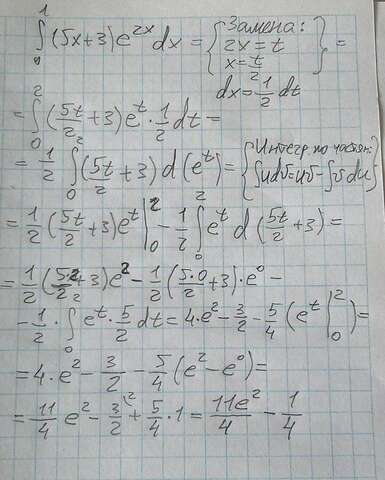 ∫₀¹ (5x+3) e^{2x} dx = { Замена: 2x = t, x = t/2, dx = 1/2 dt } =
= ∫₀² (5t/2 + 3) e^t · 1/2 dt =
= 1/2 ∫₀² (5t/2 + 3) d(e^t) = { Интегр. по частям: ∫udv = uv - ∫vdu }
= 1/2 (5t/2 + 3) e^t |₀² - 1/2 ∫₀² e^t d(5t/2 + 3) =
= 1/2 (5·2/2 + 3) e² - 1/2 (5·0/2 + 3) · e⁰ -
- 1/2 · ∫₀² e^t · 5/2 dt = 4·e² - 3/2 - 5/4 (e^t |₀²) =
= 4·e² - 3/2 - 5/4 (e² - e⁰) =
= 11/4 e² - 3/2^{\2} + 5/4 · 1 = 11e²/4 - 1/4